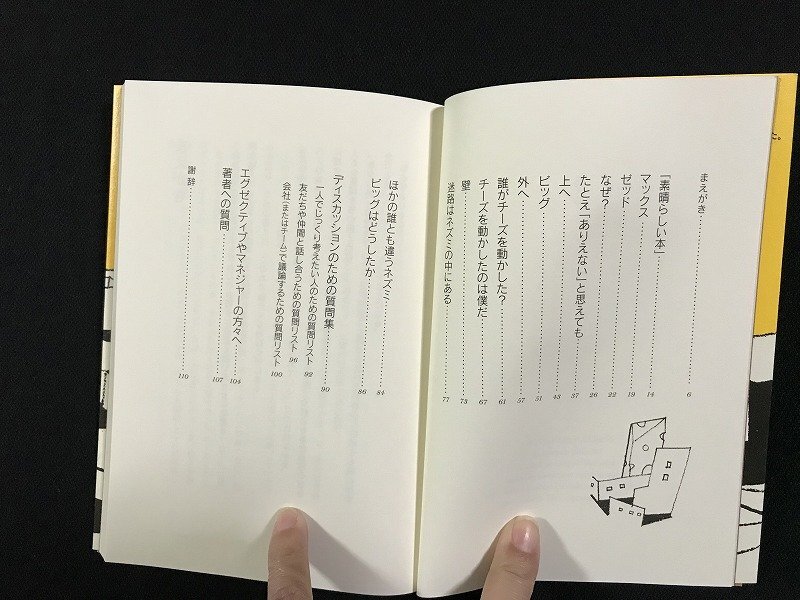 まえがき 6
「素晴らしい本」 14
マックス 19
ゼッド 22
なぜ? 26
たとえ「ありえない」と思えても 37
上へ 43
ビッグ 51
外へ 57
誰がチーズを動かした? 61
チーズを動かしたのは僕だ 67
壁 73
迷路はネズミの中にある 77
ほかの誰とも違うネズミ 84
ビッグはどうしたか 86
ディスカッションのための質問集 90
一人でじっくり考えたい人のための質問リスト 92
友だちや仲間と話し合うための質問リスト 96
会社(またはチーム)で議論するための質問リスト 100
エグゼクティブやマネジャーの方々へ 104
著者への質問 107
謝辞 110